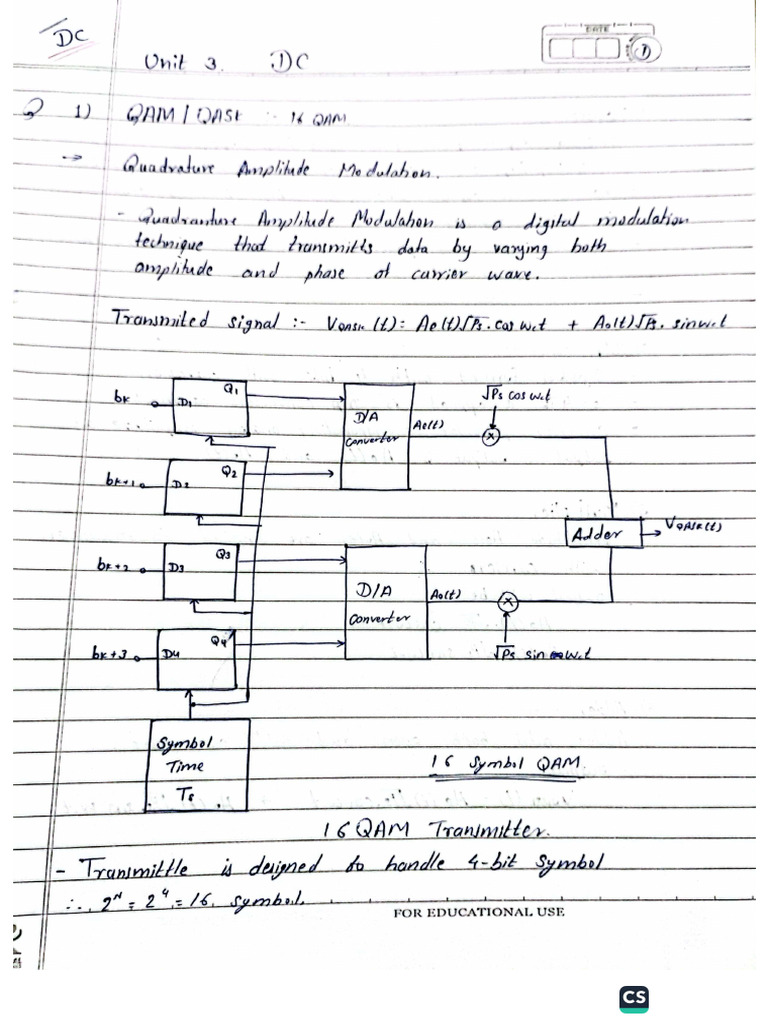 DC
DATE
1
Unit 3. DC
Q 1) QAM / QASK :- 16 QAM
→ Quadrature Amplitude Modulation.
- Quadranture Amplitude Modulation is a digital modulation
technique that transmitts data by varying both
amplitude and phase of carrier wave.
Transmited signal :- VQASK(t) = Ae(t)√Ps. cos wct + Ao(t)√Ps. sinwct
bk D1 Q1
D/A
converter
Ae(t)
√Ps cos wct
×
bk+1 D2 Q2
Adder
VQASK(t)
bk+2 D3 Q3
D/A
converter
Ao(t)
×
√Ps sin wct
bk+3 D4 Q4
Symbol
Time
Ts
16 Symbol QAM
16 QAM Transmitter.
- Transmittle is designed to handle 4-bit symbol
∴ 2ᴺ = 2⁴ = 16. symbol.
FOR EDUCATIONAL USE
CS